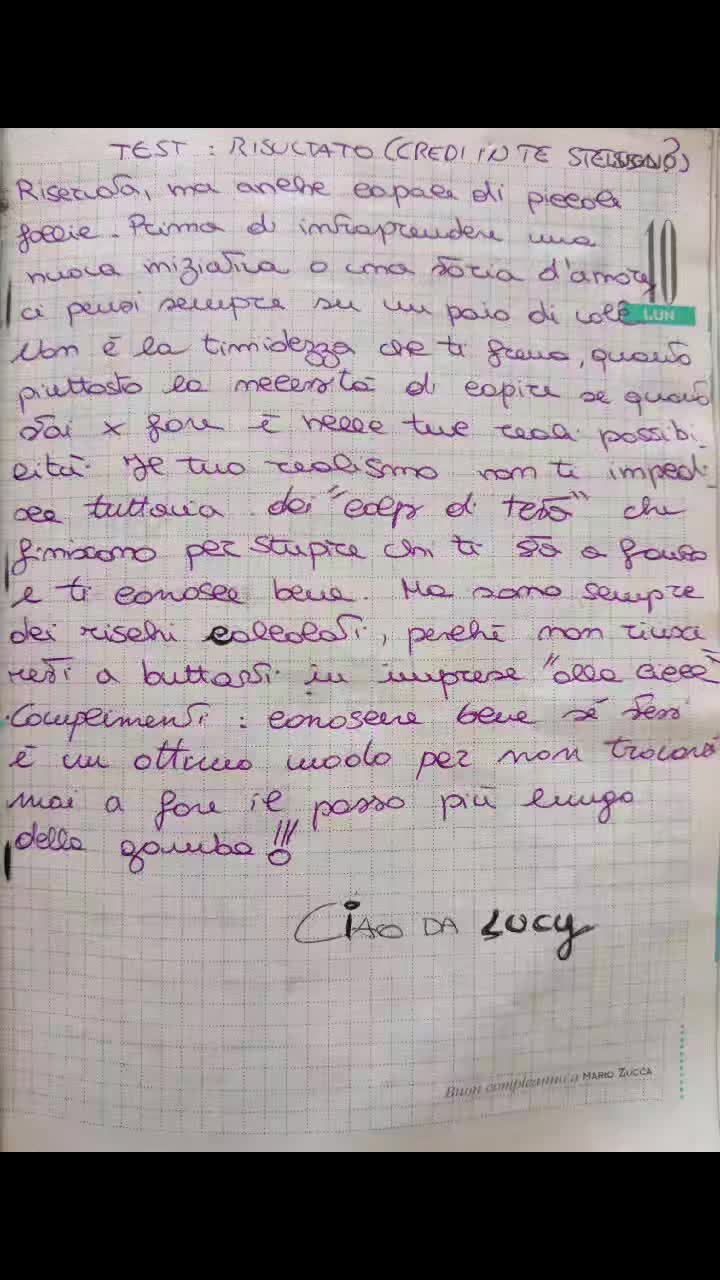 TEST : RISULTATO (CREDI IN TE STESSA?)
Riservata, ma anche capace di piccole
follie. Prima di intraprendere una
nuova iniziativa o una storia d'amore
ci pensi sempre su un paio di volte
10
LUN
Non è la timidezza che ti frena, quanto
piuttosto la necessità di capire se quanto
stai x fare è nelle tue reali possibi
lità. Il tuo realismo non ti impedi
sce tuttavia dei "colpi di testa" che
finiscono per stupire chi ti sta a fianco
e ti conosce bene. Ma sono sempre
dei rischi calcolati, perché non riusci
resti a buttarti in imprese "alla cieca"
Complimenti : conoscere bene sé stessi
è un ottimo modo per non trovarsi
mai a fare il passo più lungo
della gamba!!!
CIAO DA LUCY
Buon compleanno a MARIO ZUCCA